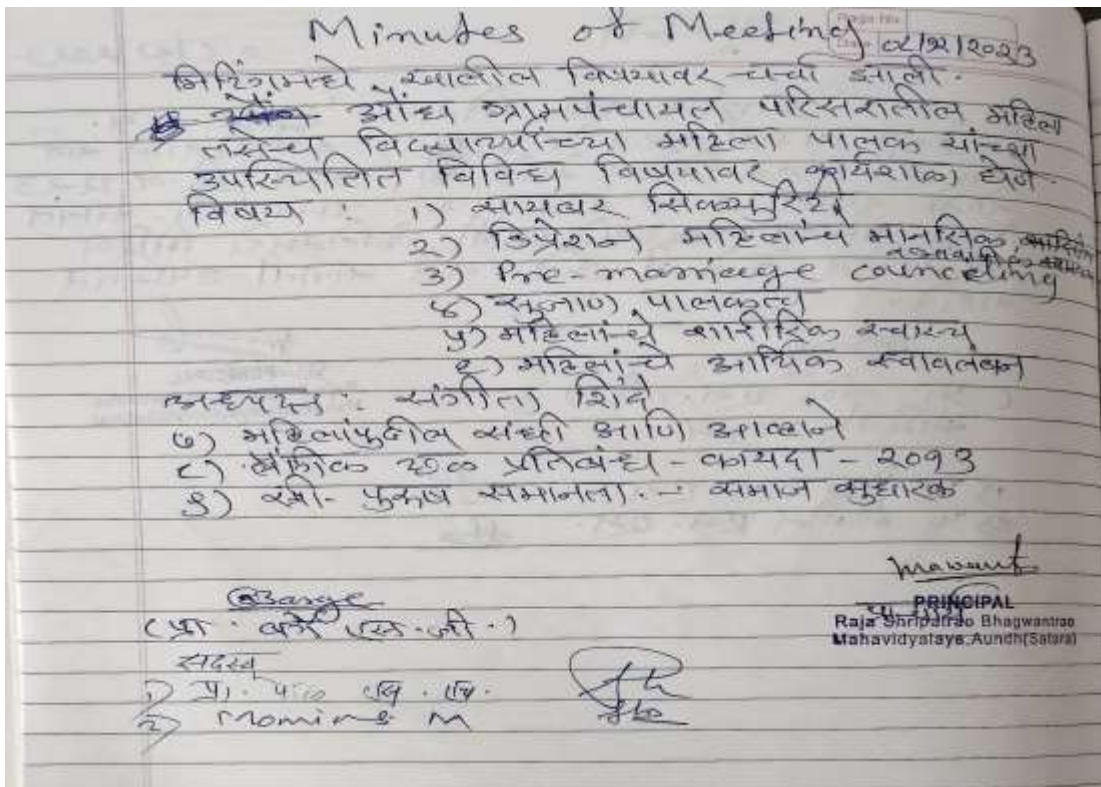 Minutes of Meeting
Page No.
Date 04/12/2023
मिटिंगमध्ये खालील विषयावर चर्चा झाली.
औंध ग्रामपंचायत परिसरातील महिला
तसेच विद्यार्थ्यांच्या महिला पालक यांच्या
उपस्थितित विविध विषयावर कार्यशाळा घेणे.
विषय : १) सायबर सिक्युरिटी
२) डिप्रेशन महिलांचे मानसिक
३) Pre-marriage counceling
४) सुजाण पालकत्व
५) महिलांचे शारीरिक स्वास्थ्य
६) महिलांचे आर्थिक स्वावलंबन
अध्यक्ष : संगीता शिंदे
७) महिलांपुढील संधी आणि आव्हाने
८) लैंगीक छळ प्रतिबंध - कायदा - २०१३
९) स्त्री-पुरुष समानता. - समाज सुधारक
Barge
(प्रा. बर्गे एस.जी.)
PRINCIPAL
Raja Shripatrao Bhagwantrao
Mahavidyalaya, Aundh(Satara)
सदस्य
१) प्रा.
२) Momin M